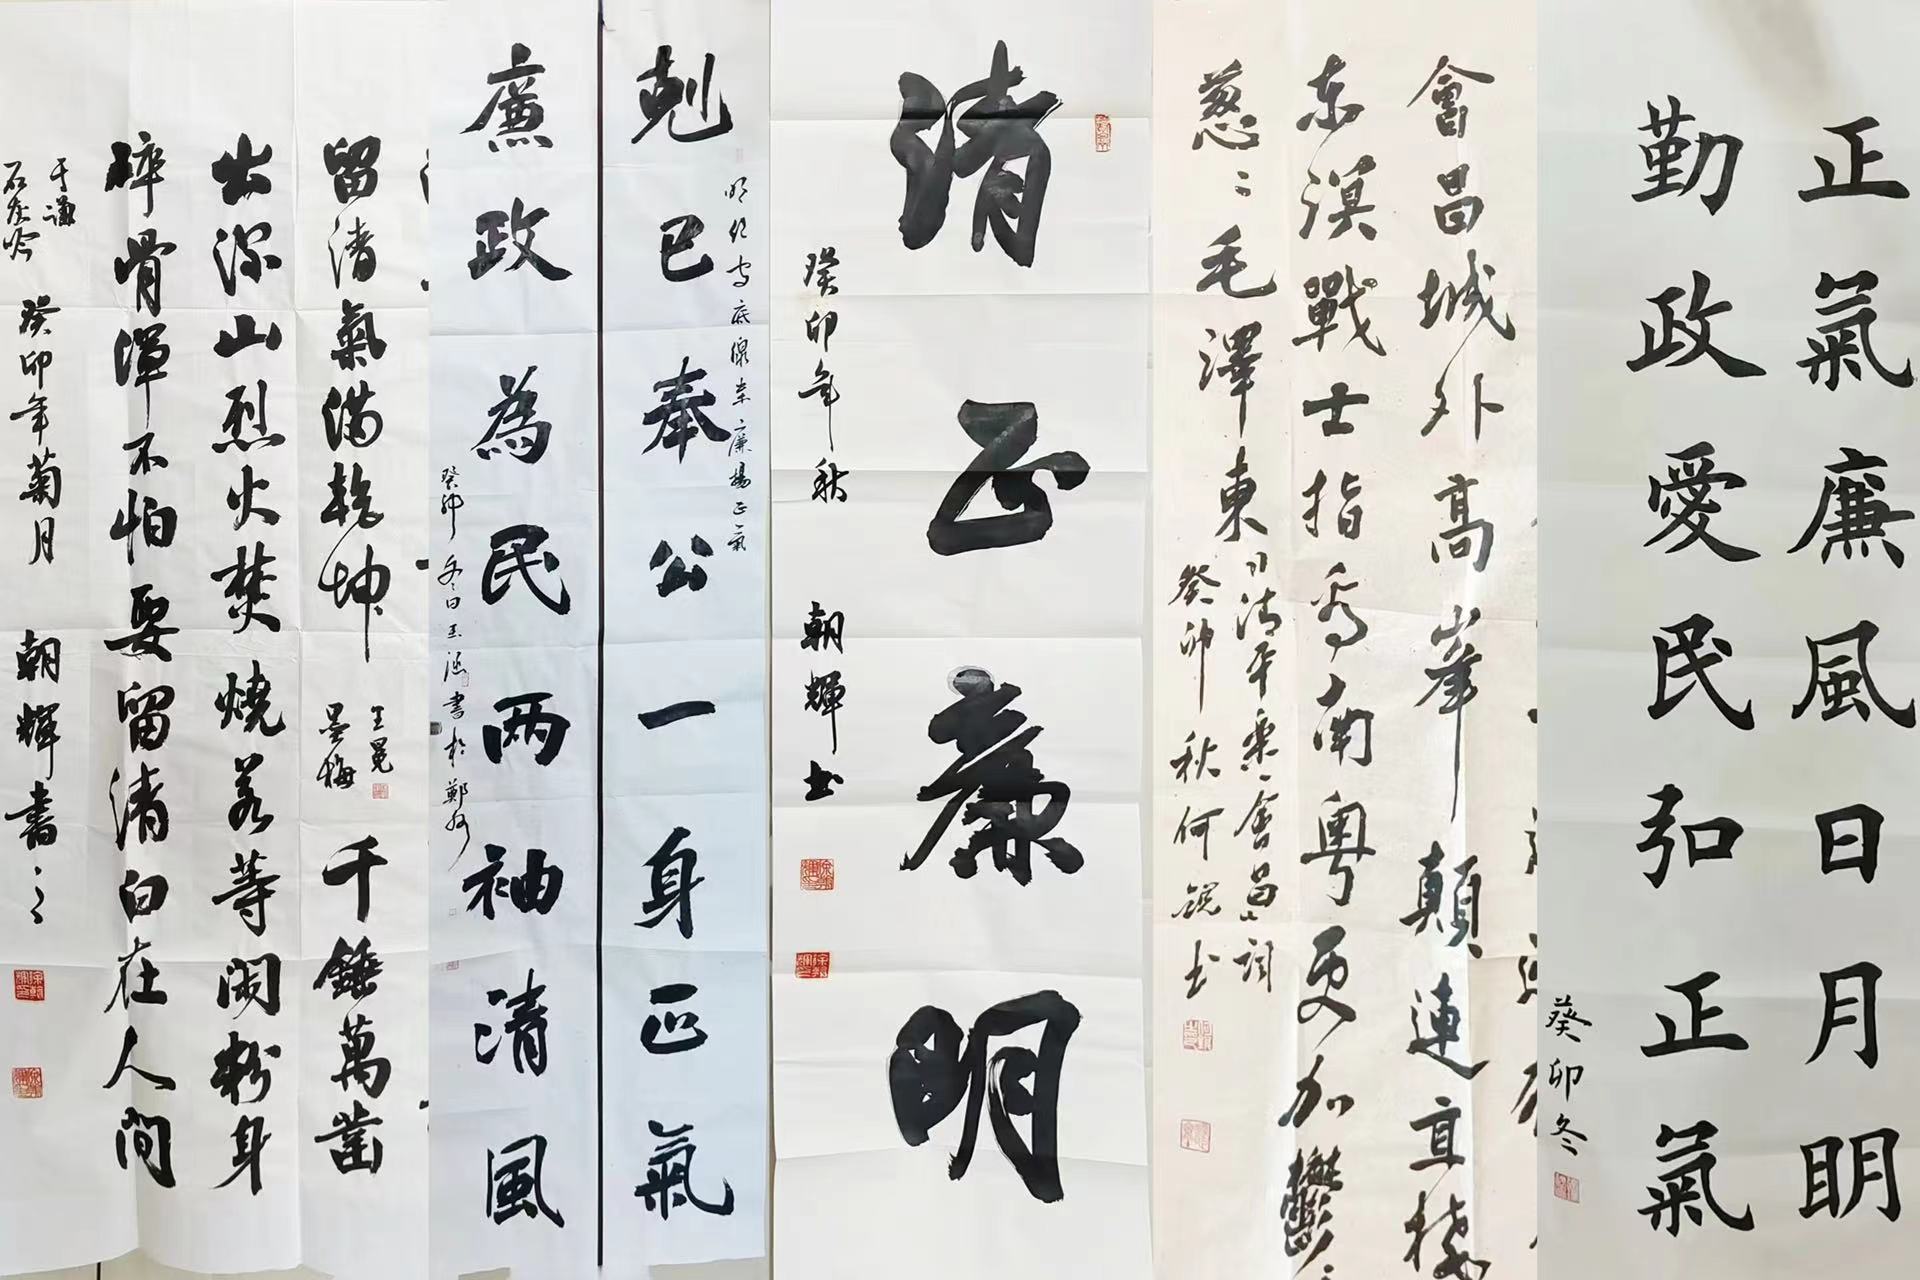 留清氣滿乾坤 王冕
墨梅 千錘萬鑿
出深山烈火焚燒若等閑粉身
碎骨渾不怕要留清白在人間
于謙
石灰吟 癸卯年菊月 朝輝書
剋己奉公一身正氣
廉揚正氣
廉政為民两袖清風
癸卯冬日王 書於鄭州
清正廉明
癸卯年秋 朝輝书
會昌城外高峯顛連直接
东溟戰士指看南粤更加鬱
蔥〻毛澤東
清平樂會昌詞
癸卯秋何 书
正氣廉風日月明
勤政愛民弘正氣
癸卯冬